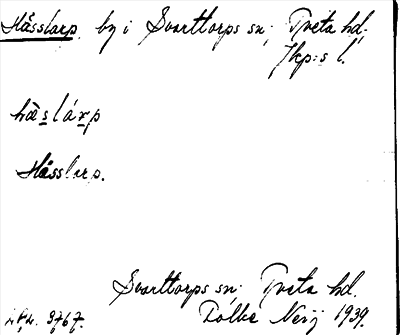 Hässlarp. by i Svarttorps sn; Tveta hd;
Jkp:s l.
hàslárp
Hässlarp.
Svarttorps sn; Tveta hd.
3767. Folke Neij 1939.